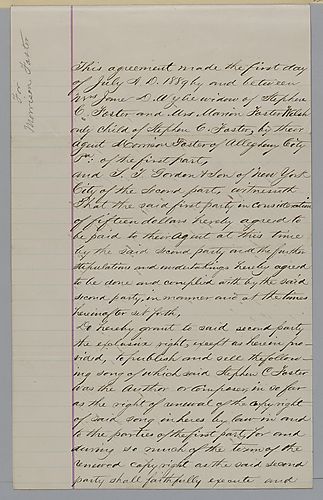 For
Morrison Foster
This agreement made the first day
of July A.D. 1889 by and between
Mrs Jane D. Wylie widow of Stephen
C. Foster and Mrs. Marion Foster Welsh
only Child of Stephen C. Foster, by their
Agent Morrison Foster of Allegheny City
Pa: of the first part,
and S. T. Gordon & Son of New York
City of the second part, witnesseth
That the said first party, in consideration
of fifteen dollars hereby agreed to
be paid to their Agent at this time
by the said second party and the further
stipulations and undertakings hereby agreed
to be done and complied with by the said
second party, in manner and at the times
hereinafter set forth,
Do hereby grant to said second party
the exclusive right, except as herein pro-
vided, to publish and sell the follow-
ing song of which said Stephen C. Foster
was the Author or composer, in so far
as the right of renewal of the copyright
of said song inheres by law in and
to the parties of the first part, for and
during so much of the term of the
renewed copyright as the said second
party shall faithfully execute and